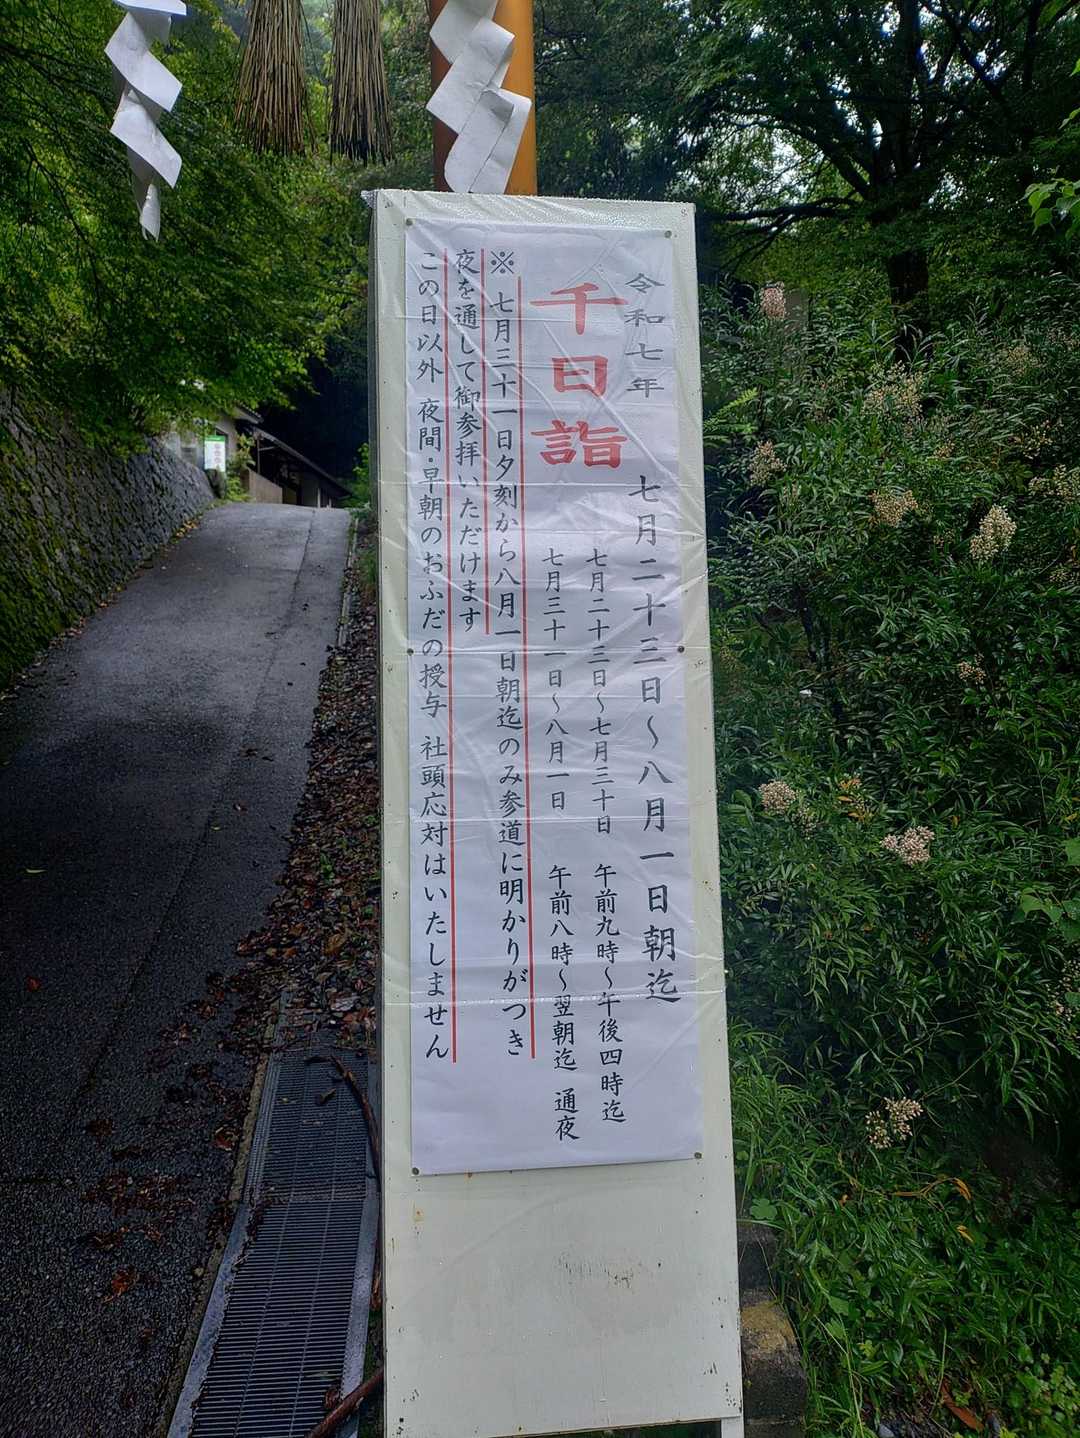 令和七年
七月二十三日～八月一日朝迄
千日詣
七月二十三日～七月三十日 午前九時～午後四時迄
七月三十一日～八月一日 午前八時～翌朝迄 通夜
※ 七月三十一日夕刻から八月一日朝迄のみ参道に明かりがつき
夜を通して御参拝いただけます
この日以外 夜間・早朝のおふだの授与 社頭応対はいたしません